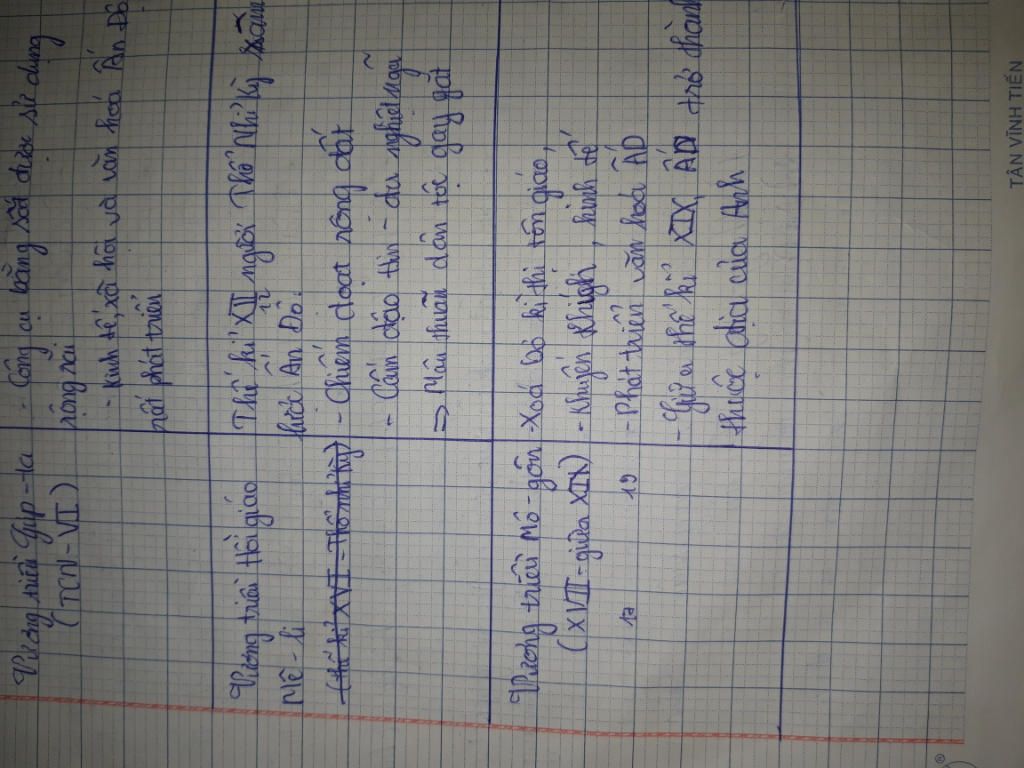 Vương triều Gúp-ta
(TCN-VI)
- Công cụ bằng sắt được sử dụng
rộng rãi
- Kinh tế, xã hội và văn hoá Ấn Độ
rất phát triển
Vương triều Hồi giáo
Đê-li
(thế kỉ XVI-Thổ nhĩ kỳ)
Thế kỉ XII người Thổ Nhĩ Kỳ xâm
12
lược Ấn Độ:
- Chiếm đoạt ruộng đất
- Cấm đạo Hin-đu nghiệt ngã
=> Mâu thuẫn dân tộc gay gắt
Vương triều Mô-gôn
(XVII-giữa XIX)
17 19
-Xoá bỏ kì thị tôn giáo,
- Khuyến khích, kinh tế
- Phát triển văn hoá ÂĐ
- Giữa thế kỉ XIX, ÂĐ trở thành
thuộc địa của Anh
TÂN VĨNH TIẾN